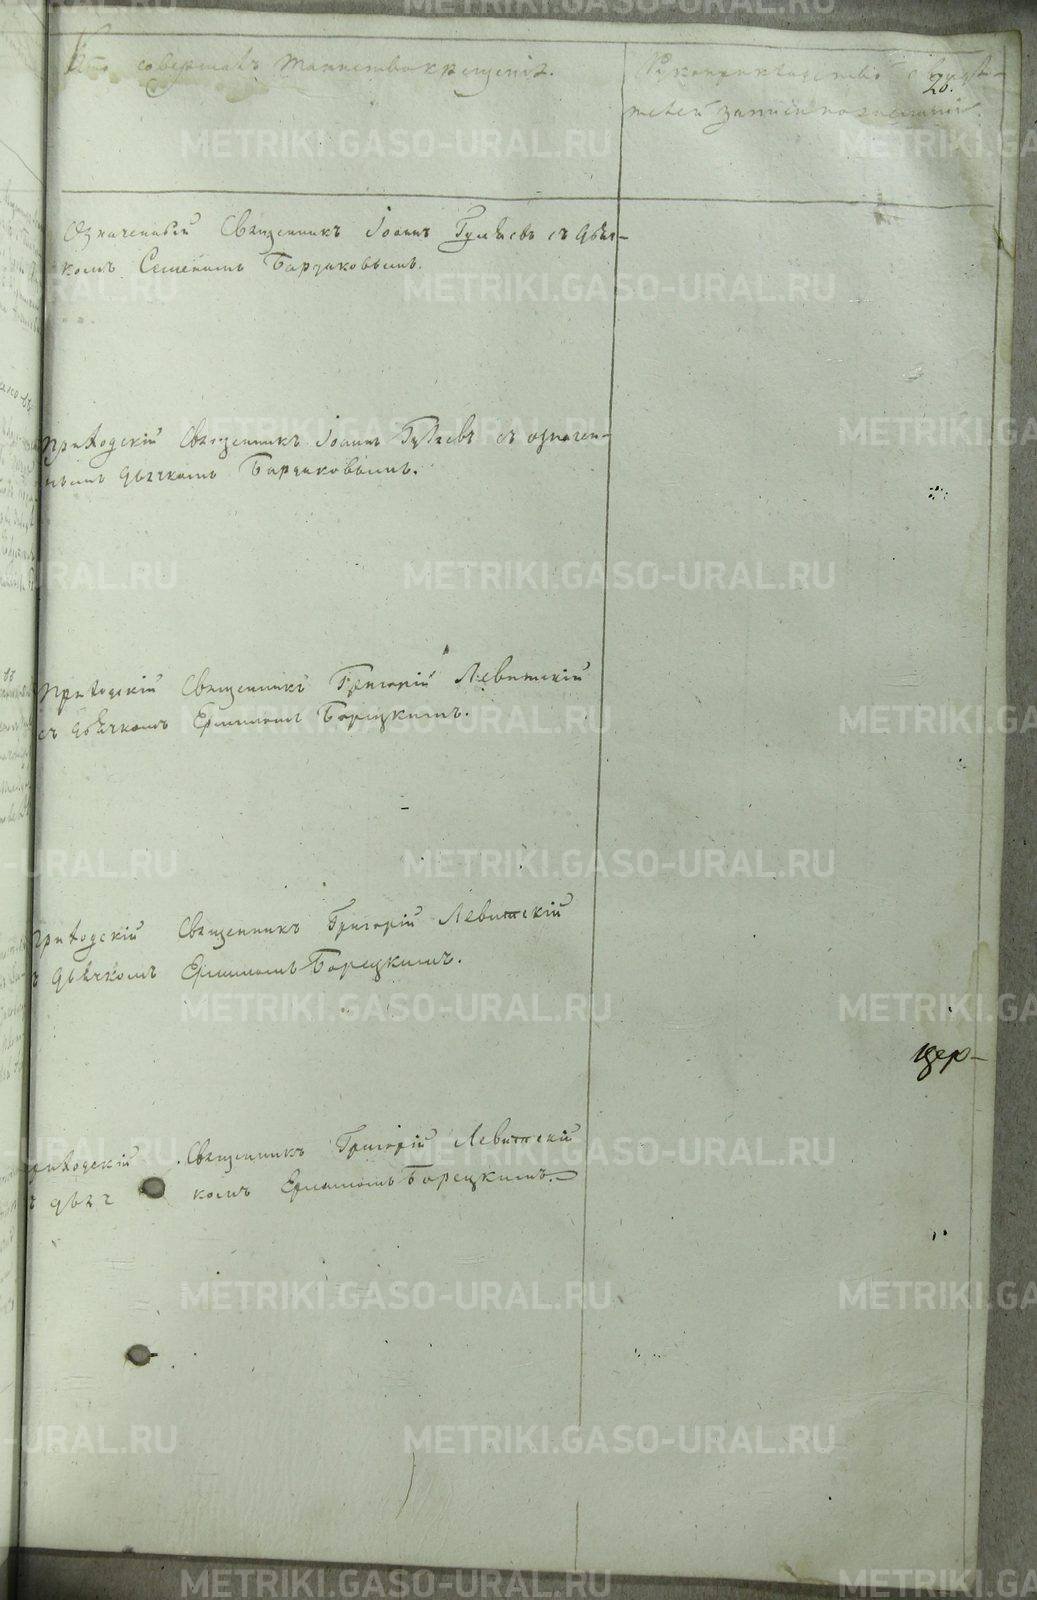 Кто совершалъ таинство крещенія.
Рукоприкладство свидѣ-
телей записи по желанію.
20.
Означенный Священникъ Іоаннъ Гуляевъ съ дьяч-
комъ Семеномъ Бардаковымъ.
Приходскій Священникъ Іоаннъ Гуляевъ съ означен-
нымъ дьячкомъ Бардаковымъ.
Приходскій Священникъ Григорій Левитскій
съ дьячкомъ Ермиломъ Борецкимъ.
Приходскій Священникъ Григорій Левитскій
ъ дьячкомъ Борецкимъ.
цер-
риходскій Священникъ Григорій Левитскій
ъ дьячкомъ Борецкимъ.
METRIKI.GASO-URAL.RU